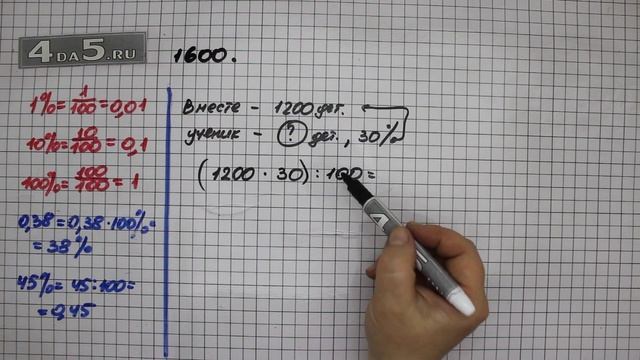 4DA5.RU
1600.
1% = 1/100 = 0,01
10% = 10/100 = 0,1
100% = 100/100 = 1
0,38 = 0,38 · 100% =
= 38%
45% = 45 : 100 =
= 0,45
Вместе - 1200 дет.
ученик - ? дет., 30%
(1200 · 30) : 100 =